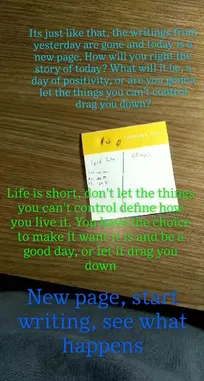 Its just like that, the writings from
yesterday are gone and today is a
new page. How will you right the
story of today? What will it be, a
day of positivity, or are you gonna
let the things you can't control
drag you down?
Life is short, don't let the things
you can't control define how
you live it. You have the choice
to make it want it is and be a
good day, or let it drag you
down
New page, start
writing, see what
happens